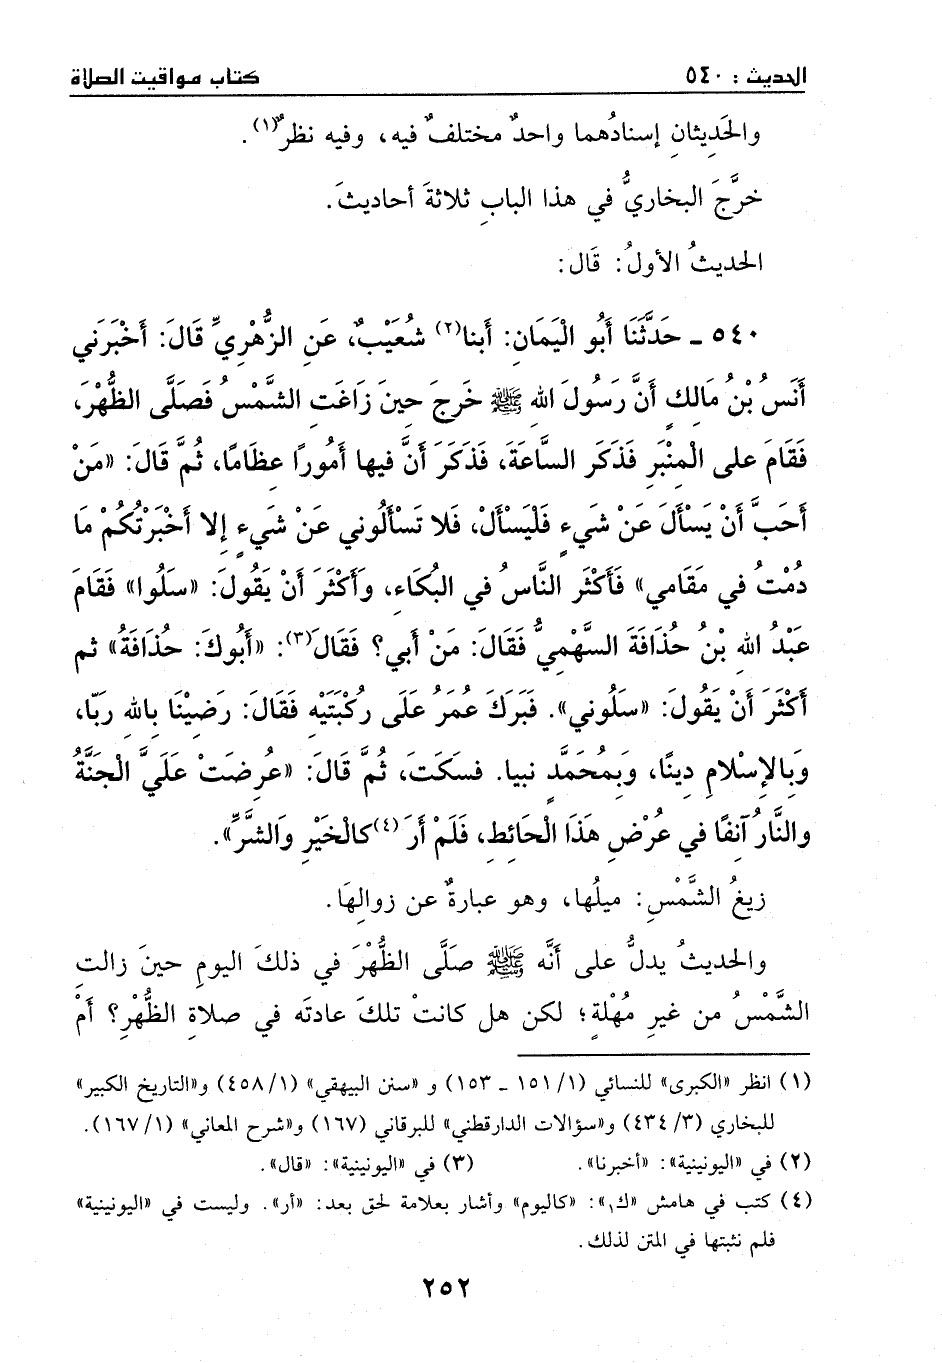 الحديث : ٥٤٠ كتاب مواقيت الصلاة
والحَدِيثانِ إسنادُهما واحدٌ مختلفٌ فيه، وفيه نظرٌ(١).
خرَّجَ البخاريُّ في هذا البابِ ثلاثةَ أحاديثَ.
الحديثُ الأولُ: قَال:
٥٤٠ ـ حَدَّثَنَا أَبُو الْيَمَانِ: أَبنا(٢) شُعَيْبٌ، عَنِ الزُّهْرِيِّ قَالَ: أَخْبَرَني
أَنَسُ بْنُ مَالِكٍ أَنَّ رَسُولَ اللهِ ﷺ خَرجَ حِينَ زَاغَتِ الشَّمْسُ فَصَلَّى الظُّهْرَ،
فَقَامَ على الْمِنْبَرِ فَذَكَر السَّاعَةَ، فَذَكَرَ أَنَّ فيها أُمُورًا عِظَامًا، ثُمَّ قَالَ: «مَنْ
أَحَبَّ أَنْ يَسْأَلَ عَنْ شَيءٍ فَلْيَسْأَلْ، فَلا تَسْأَلُوني عَنْ شَيءٍ إِلا أَخْبَرْتُكُمْ مَا
دُمْتُ في مَقَامي» فَأَكْثَر النَّاسُ في البُكَاءِ، وَأَكْثَرَ أَنْ يَقُولَ: «سَلُوا» فَقَامَ
عَبْدُ اللهِ بْنُ حُذَافَةَ السَّهْمِيُّ فَقَالَ: مَنْ أَبي؟ فَقَالَ(٣): «أَبُوكَ: حُذَافَةُ» ثم
أَكْثَرَ أَنْ يَقُولَ: «سَلُوني». فَبَرَكَ عُمَرُ عَلَى رُكْبَتَيْهِ فَقَالَ: رَضِيْنَا بِاللهِ رَبّا،
وَبِالإِسْلامِ دِينًا، وَبِمُحَمَّدٍ نبيا. فسكَتَ، ثُمَّ قَالَ: «عُرِضَتْ عَلَيَّ الْجَنَّةُ
والنَّارُ آنفًا في عُرْضِ هَذَا الْحَائِطِ، فَلَمْ أَرَ(٤)كالْخَيْرِ وَالشَّرِّ».
زيغُ الشَّمْسِ: ميلُها، وهو عبارةٌ عن زوالِهَا.
والحديثُ يدلُّ على أنَّه ﷺ صَلَّى الظُّهْرَ في ذلكَ اليومِ حينَ زالتِ
الشَّمْسُ من غيرِ مُهْلةٍ؛ لكن هل كانتْ تلكَ عادتَه في صلاةِ الظُّهْرِ؟ أمْ
(١) انظر «الكبرى» للنسائي (١/ ١٥١ ـ ١٥٣) و «سنن البيهقي» (١/ ٤٥٨) و«التاريخ الكبير»
للبخاري (٣/ ٤٣٤) و«سؤالات الدارقطني» للبرقاني (١٦٧) و«شرح المعاني» (١/ ١٦٧).
(٢) في «اليونينية»: «أخبرنا». (٣) في «اليونينية»: «قال».
(٤) كتب في هامش «ك١»: «كاليوم» وأشار بعلامة لحق بعد: «أر». وليست في «اليونينية»
فلم نثبتها في المتن لذلك.
٢٥٢